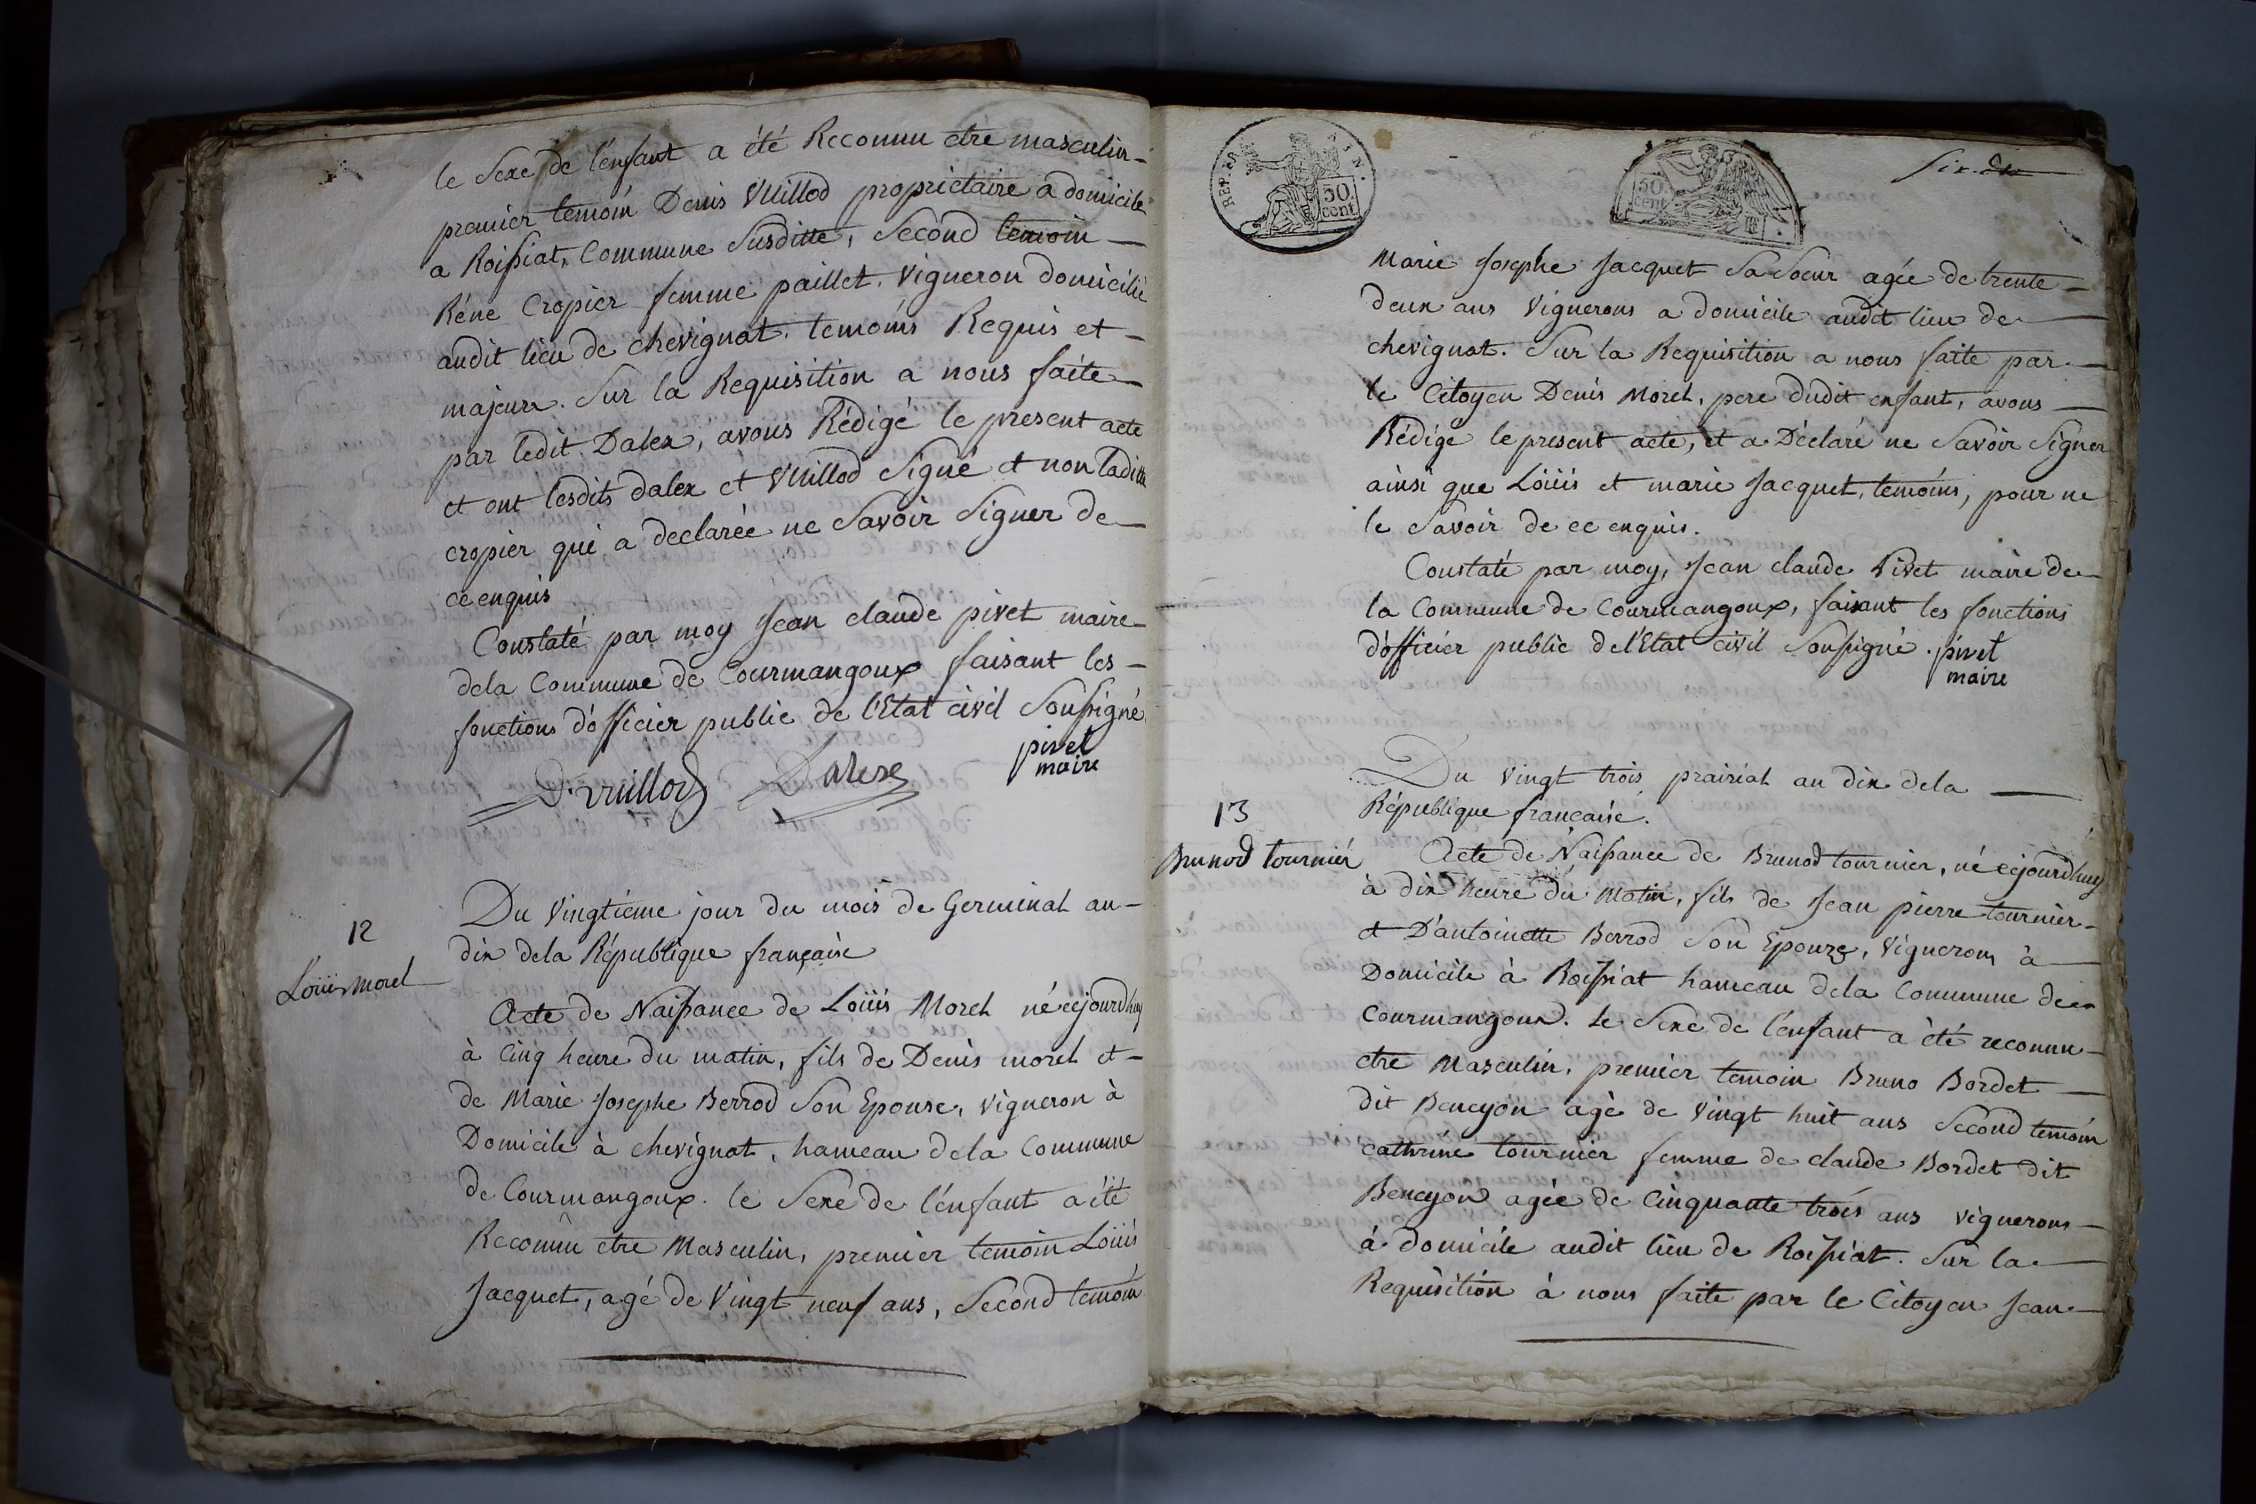 le Sexe de l'enfant a été Reconnu etre masculin-
premier temoin Denis Vuillod propriétaire a domicile
a Roissiat, Commune Susditte, Second temoin —
Réné Cropier femme paillet, Vigneron domicilié
audit lieu de chevignat, temoins Requis et -
majeurs. Sur la Requisition a nous faite -
par ledit Dalex, avous Rédigé le present acte
et ont lesdits dalex et Vuillod Signé et non laditte
cropier qui a declarée ne Savoir Signer de —
ce enquis
Constaté par moy Jean claude pivet maire -
dela Commune de Courmangoux faisant les -
fonctions d'officier public de l'Etat civil Soussigné
pivet
maire
D. Vuillod Dalex
Du Vingtieme jour du mois de Germinal an -
dix dela République française
12
Loüis Morel
Acte de Naissance de Loüis Morel né cejourd'huy
à Cinq heure du matin, fils de Denis morel et -
de Marie Josephe Berrod Son Epouse, vigneron à
Domicile à chevignat, hameau dela Commune
de Courmangoux. le Sexe de l'enfant a été
Reconnû etre Masculin, premier temoin Loüis
Jacquet, agé de Vingt neuf ans, Second temoin
REP. FRA
50
cent
50
cent
Six.
Marie Josephe Jacquet Sa Soeur agée de trente —
deux ans Vignerons a domicile audit lieu de —
chevignat. Sur la Requisition a nous faite par —
le Citoyen Denis Morel, pere dudit enfant, avons —
Rédigé le present acte, et a Déclaré ne Savoir Signer
ainsi que Loüis et marie Jacquet, temoins, pour ne
le Savoir de ce enquis.
Constaté par moy, Jean claude Pivet maire de —
la Commune de Courmangoux, faisant les fonctions
d'officier public de l'Etat civil Soussigné. pivet
maire
Du Vingt trois prairial an dix dela —
République française.
13
Brunod tournier
Acte de Naissance de Brunod tournier, né cejourd'huy
à dix heure du Matin, fils de Jean pierre tournier -
et D'antoinette Berrod Son Epouze, Vignerons à —
Domicile à Roissiat hameau dela Commune de
Courmangoux. le Sexe de l'enfant a été reconnu -
etre Masculin, premier temoin Bruno Bordet —
dit Beneyon agé de Vingt huit ans Second temoin
Cathrine tournier femme de claude Bordet dit
Beneyon agée de Cinquante trois ans vignerons —
à domicile audit lieu de Roissiat. Sur la —
Requisition à nous faite par le Citoyen Jean —